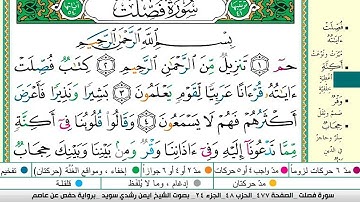 سُورَةُ فُصِّلَتْ
بِسْمِ اللَّهِ الرَّحْمَٰنِ الرَّحِيمِ
حمٓ ۝١ تَنزِيلٌ مِّنَ الرَّحْمَٰنِ الرَّحِيمِ ۝٢ كِتَابٌ فُصِّلَتْ
ءَايَاتُهُ قُرْءَانًا عَرَبِيًّا لِّقَوْمٍ يَعْلَمُونَ ۝٣ بَشِيرًا وَنَذِيرًا فَأَعْرَضَ
أَكْثَرُهُمْ فَهُمْ لَا يَسْمَعُونَ ۝٤ وَقَالُوا قُلُوبُنَا فِي أَكِنَّةٍ
مِّمَّا تَدْعُونَا إِلَيْهِ وَفِي ءَاذَانِنَا وَقْرٌ وَمِن بَيْنِنَا وَبَيْنِكَ حِجَابٌ
فُصِّلَتْ
ءَايَاتُهُ
أَكِنَّةٍ
وَقْرٌ
مد ٦ حركات لزوماً
مد ٢ أو ٤ أو ٦ جوازاً
إخفاء، ومواقع الغُنَّة (حركتان)
تفخيم
مد حركتان
إدغام، وما لا يُلفَظ
قلقلة
سورة فصلت _ الصفحة ٤٧٧ _ الحزب ٤٨ _ الجزء ٢٤ _ بصوت الشيخ أيمن رشدي سويد _ برواية حفص عن عاصم